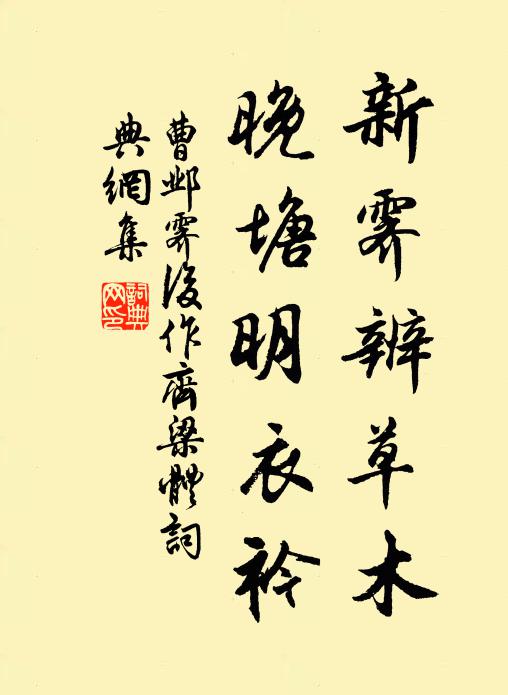 新霽辨草木
晚塘明衣衿
曹邺霽後作齊梁體詞
典網集
詞典
网印